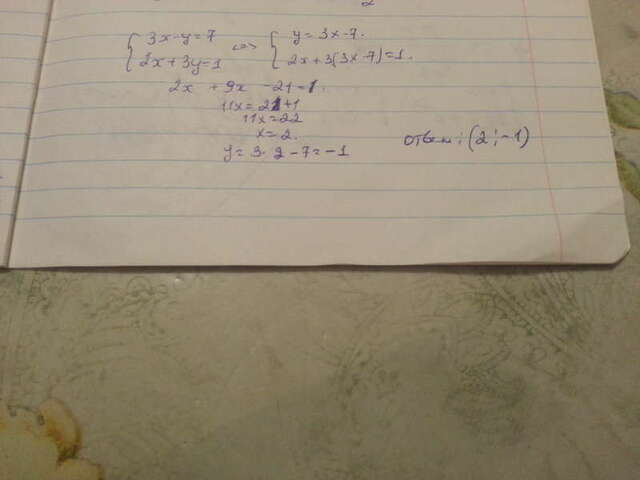 2
{ 3x-y=7 <=> { y=3x-7.
{ 2x+3y=1 { 2x+3(3x-7)=1.
2x + 9x - 21=1.
11x=21+1
11x=22
x=2.
y=3·2-7=-1 Ответ: (2;-1)